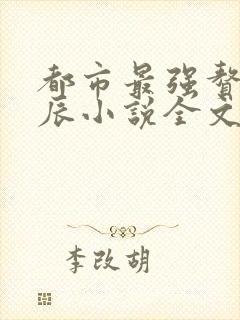 都市最强赘
辰小说全文
李改胡